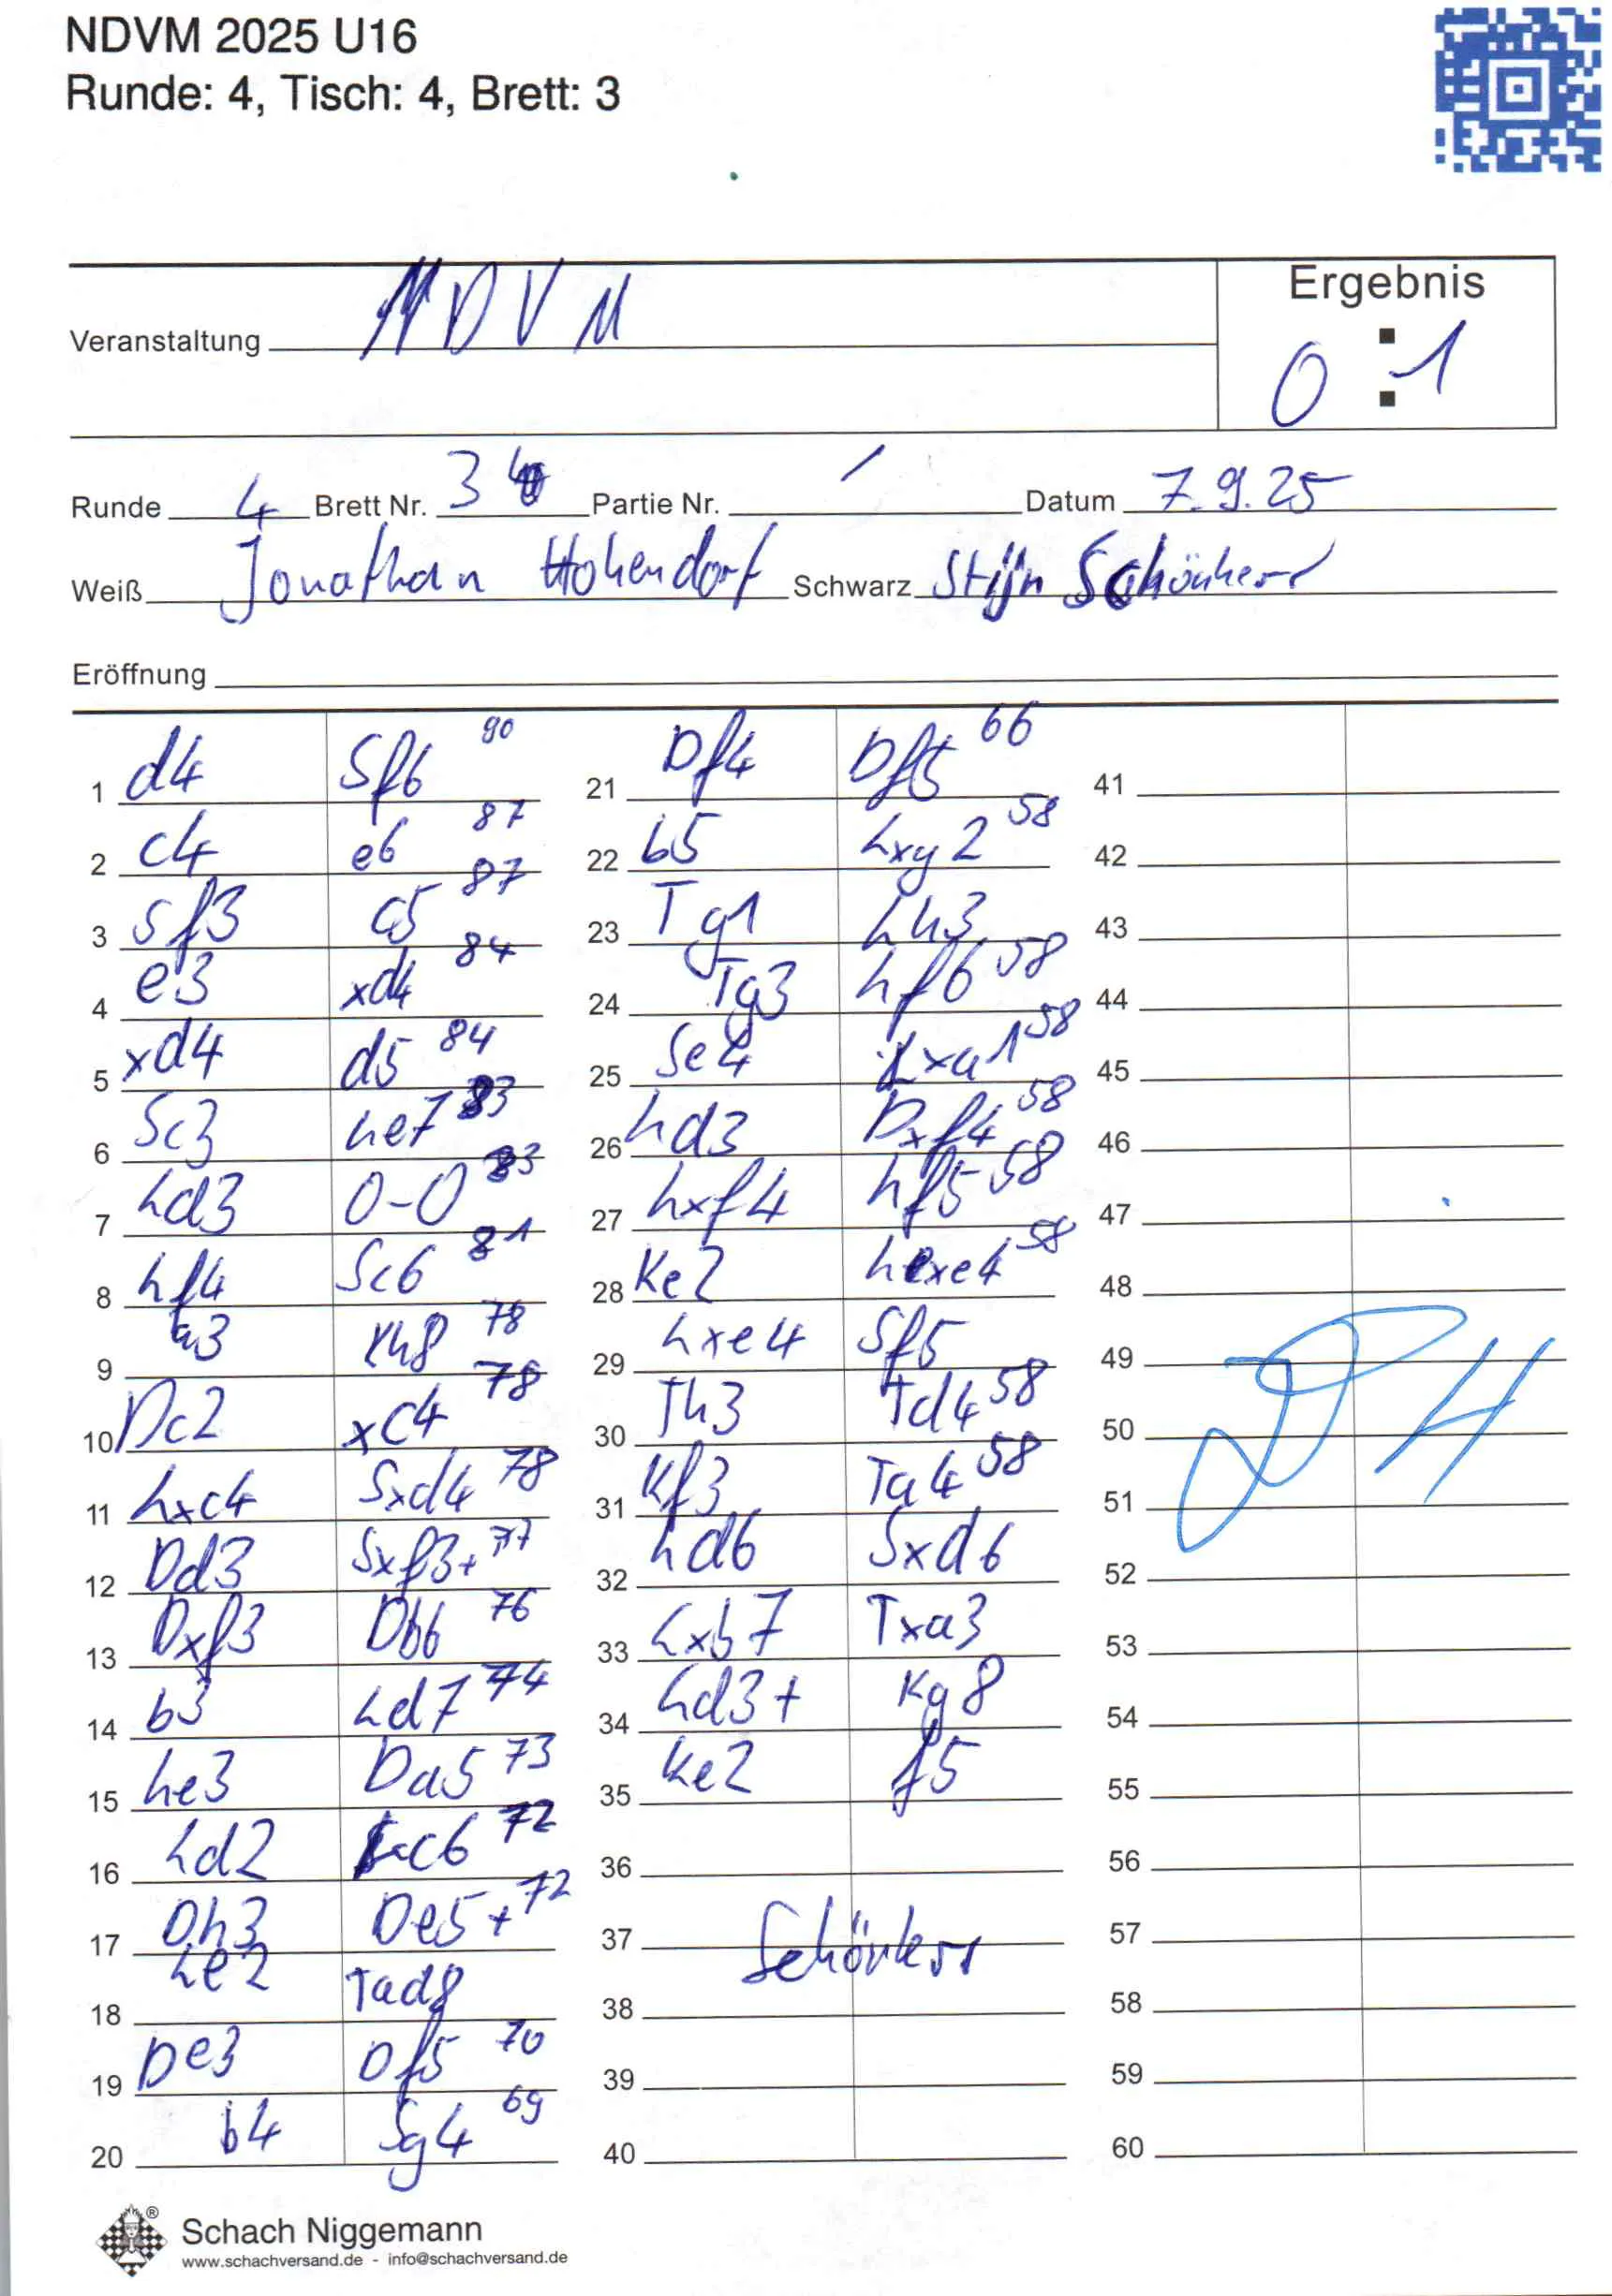 NDVM 2025 U16
Runde: 4, Tisch: 4, Brett: 3
Veranstaltung NDVM
Ergebnis
0 : 1
Runde 4 Brett Nr. 3 Partie Nr. / Datum 7.9.25
Weiß Jonathan Hohendorf Schwarz Stijn Schönherr
Eröffnung
1 d4 Sf6 90
2 c4 e6 87
3 Sf3 c5 87
4 e3 xd4 84
5 xd4 d5 84
6 Sc3 Le7 83
7 Ld3 0-0 83
8 Lf4 Sc6 81
9 a3 Kh8 78
10 Dc2 xc4 78
11 Lxc4 Sxd4 78
12 Dd3 Sxf3+ 77
13 Dxf3 Db6 76
14 b3 Ld7 74
15 Le3 Da5 73
16 Ld2 Lc6 72
17 Dh3 De5+ 72
18 Le2 Tad8
19 De3 Df5 70
20 b4 Sg4 69
21 Df4 Df5 66
22 b5 Lxg2 58
23 Tg1 Lh3
24 Tg3 Lf6 58
25 Se4 Lxa1 58
26 Ld3 Dxf4 58
27 Lxf4 Lf5 58
28 Ke2 Lxe4 58
29 Lxe4 Sf5
30 Th3 Td4 58
31 Kf3 Ta4 58
32 Ld6 Sxd6
33 Lxb7 Txa3
34 Ld3+ Kg8
35 Ke2 f5
36
37 Schönherr
38
39
40
41
42
43
44
45
46
47
48
49
50
51
52
53
54
55
56
57
58
59
60
Schach Niggemann
www.schachversand.de - info@schachversand.de